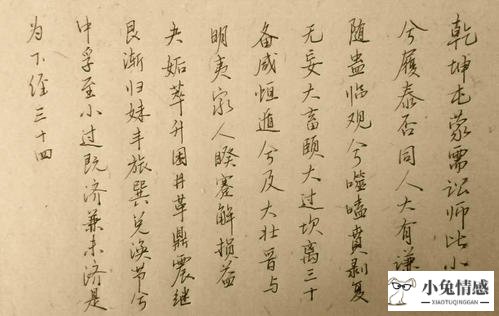 乾坤屯蒙需讼师比小
兮履泰否同人大有谦
随蛊临观兮噬嗑贲剥复
无妄大畜颐大过坎离三十
备咸恒遁兮及大壮晋与
明夷家人睽蹇解损益
夬姤萃升困井革鼎震继
艮渐归妹丰旅巽兑涣节兮
中孚至小过既济兼未济是
为下经三十四
小兔情感
XIAOTUQINGGAN